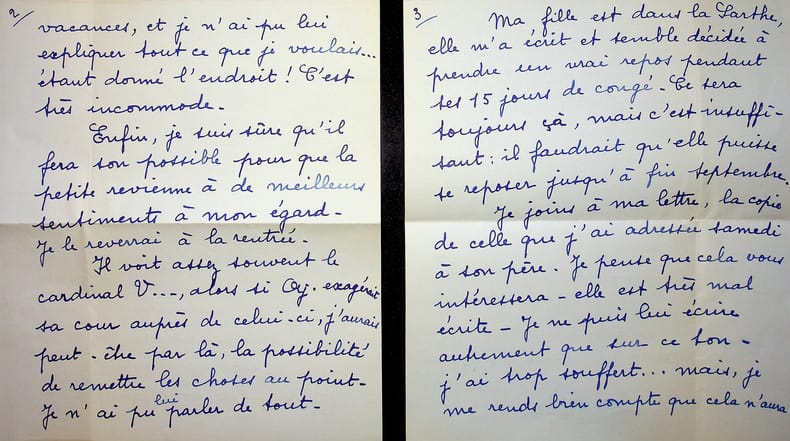 2/
vacances, et je n'ai pu lui
expliquer tout ce que je voulais...
étant donné l'endroit ! C'est
très incommode.
Enfin, je suis sûre qu'il
fera son possible pour que la
petite revienne à de meilleurs
sentiments à mon égard.
Je le reverrai à la rentrée.
Il voit assez souvent le
cardinal V..., alors si Oj. exagérait
sa cour auprès de celui-ci, j'aurais
peut-être par là, la possibilité
de remettre les choses au point.
Je n'ai pu lui parler de tout.
3/
Ma fille est dans la Sarthe,
elle m'a écrit et semble décidée à
prendre un vrai repos pendant
ses 15 jours de congé. Ce sera
toujours çà, mais c'est insuffi-
sant : il faudrait qu'elle puisse
se reposer jusqu'à fin septembre.
Je joins à ma lettre, la copie
de celle que j'ai adressée samedi
à son père. Je pense que cela vous
intéressera - elle est très mal
écrite - Je ne puis lui écrire
autrement que sur ce ton -
j'ai trop souffert... mais, je
me rends bien compte que cela n'aura